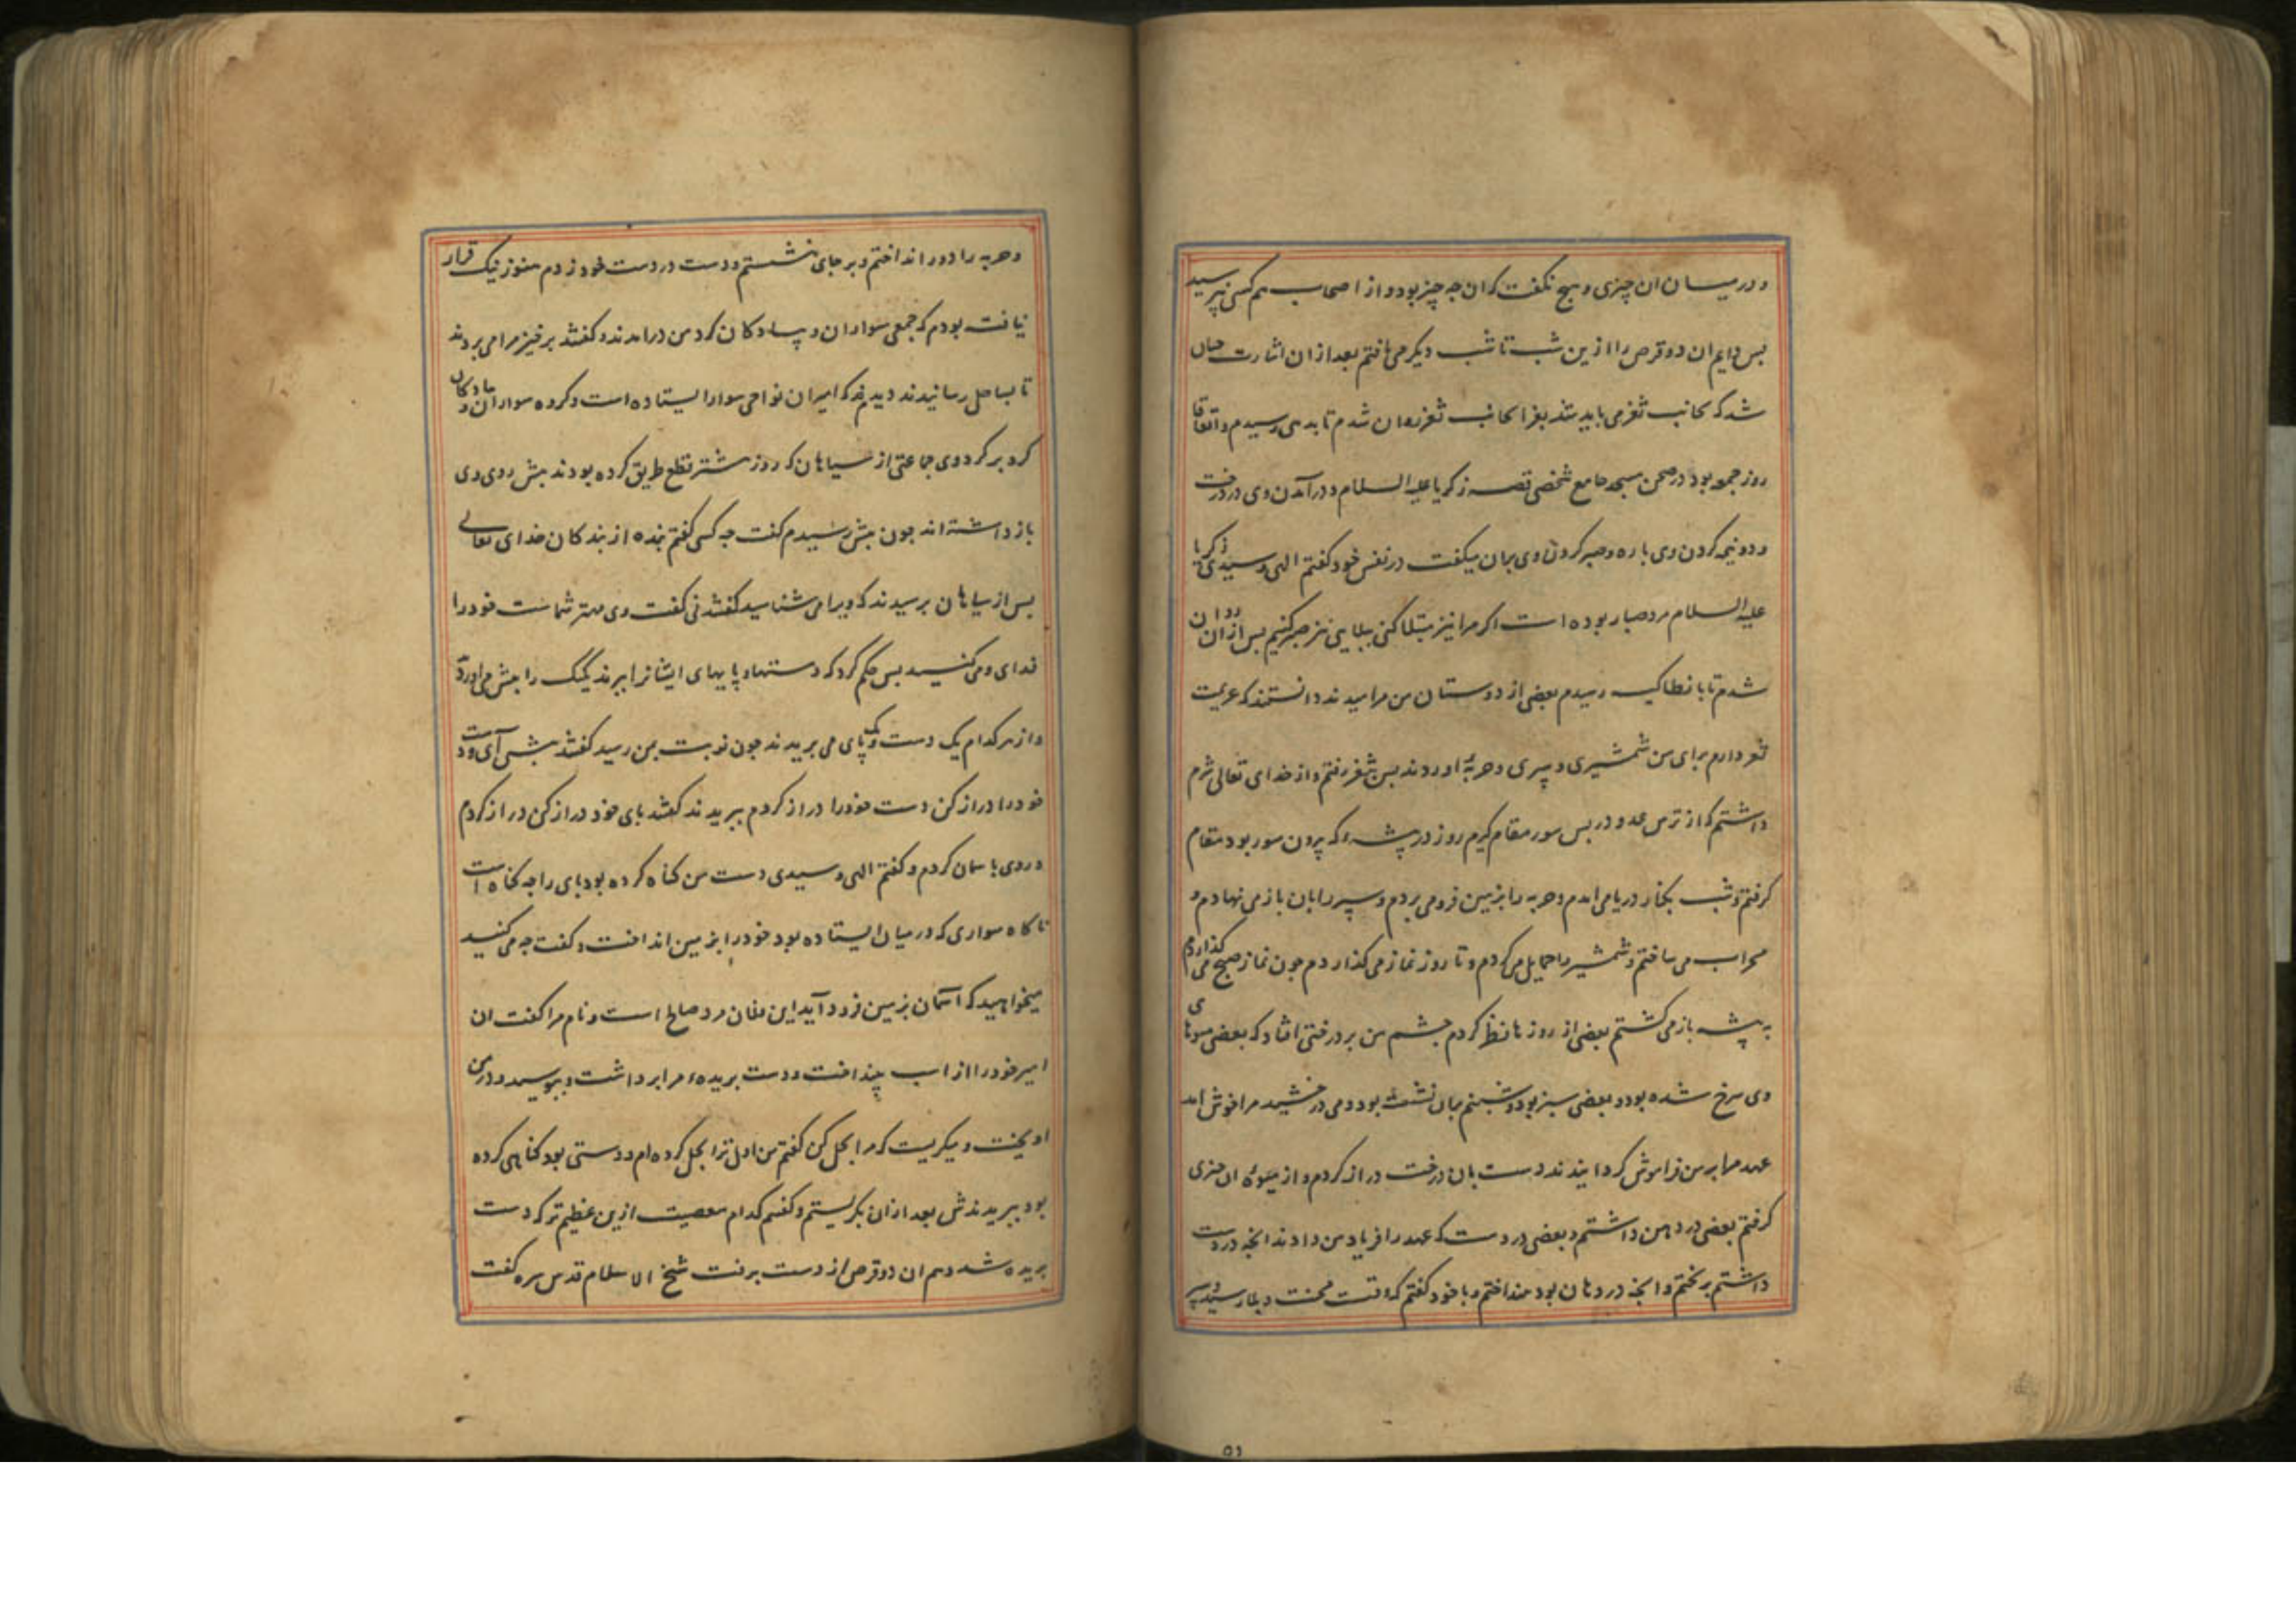 و در میان ان چیزی و هیچ نکفت که ان چه چیز بود و از اصحاب هم کسی نپرسید
بس دایم ان دو قرص را ازین شب تا شب دیکر می یافتم بعد از ان اشارت چنان
شد که بجانب ثغر می باید شد بغزا بجانب ثغر روان شدم تا بدهی رسیدم و اتفاقا
روز جمعه بود در صحن مسجد جامع شخصی قصه زکریا علیه السلام و درآمدن وی در درخت
و دو نیمه کردن وی باره و صبر کردن وی بران میکفت در نفس خود کفتم الهی و سیدی زکریا
علیه السلام مرد صبار بوده است اکر مرا نیز مبتلا کنی ببلایی نیز صبر کنیم بس از ان روان
شدم تا بانطاکیه رسیدم بعضی از دوستان من مرا دیدند دانستند که عزیمت
ثغر دارم برای من شمشیری و سپری و حربهٔ اوردند بس بثغر رفتم و از خدای تعالی شرم
داشتم که از ترس عدو در بس سور مقام کیرم روز در پیشهٔ که بیرون سور بود مقام
کرفتم و شب بکنار دریا می امدم و حربه را بزمین فرو می بردم و سپر را بان باز می نهادم و
محراب می ساختم و شمشیر را حمایل می کردم و تا روز نماز می کذاردم چون نماز صبح می کذاردم
به پیشه باز می کشتم بعضی از روزها نظر کردم چشم من بر درختی افتاد که بعضی میوهای
وی سرخ شده بود و بعضی سبز بود و شبنم بران نشسته بود و می درخشید مرا خوش امد
عهد مرا بر من فراموش کردانیدند دست بان درخت دراز کردم و از میوهٔ ان چیزی
کرفتم بعضی در دهن داشتم و بعضی در دست که عهد را فریاد من دادند انچه در دست
داشتم بریختم و انچه در دهان بود بینداختم و با خود کفتم که وقت محنت و بلا رسید و سپر
و حربه را دور انداختم و بر جای بنشستم و دست در دست خود زدم هنوز نیک قرار
نیافته بودم که جمعی سواران و پیادکان کرد من درامدند و کفتند برخیز مرا می بردند
تا بساحل رسانیدند دیدم که امیران نواحی سوار ایستاده است و کروه سواران و پیادکان
کرد بر کرد وی جماعتی از سیاهان که روز پیشتر قطع طریق کرده بودند پیش روی وی
بازداشته اند چون پیش رسیدم کفت چه کسی کفتم بنده از بندکان خدای تعالی
بس از سیاهان برسیدند که ویرا می شناسید کفتند نی کفت وی مهتر شماست خود را
فدای وی می کنید بس حکم کرد که دستها و پایهای ایشانرا ببرند یک یک را پیش می اورد
و از هر کدام یک دست و یک پای می بریدند چون نوبت بمن رسید کفتند پیش آی و دست
خود را دراز کن دست خود را دراز کردم ببریدند کفتند پای خود دراز کن دراز کردم
و روی باسمان کردم و کفتم الهی و سیدی دست من کناه کرده بود پای را چه کناه است
ناکاه سواری که در میان ایستاده بود خود را بزمین انداخت و کفت چه می کنید
میخواهید که آسمان بزمین فرود آید این فلان مرد صالح است و نام مرا کفت ان
امیر خود را از اسب بینداخت و دست بریدهٔ مرا برداشت و ببوسید و در من
اویخت و میکریست که مرا بحل کن کفتم من اول ترا بحل کرده ام دستی بود کناهی کرده
بود ببریدندش بعد از ان بکریستم و کفتم کدام معصیت ازین عظیم تر که دست
بریده شد و هم ان دو قرص از دست برفت شیخ الاسلام قدس سره کفت